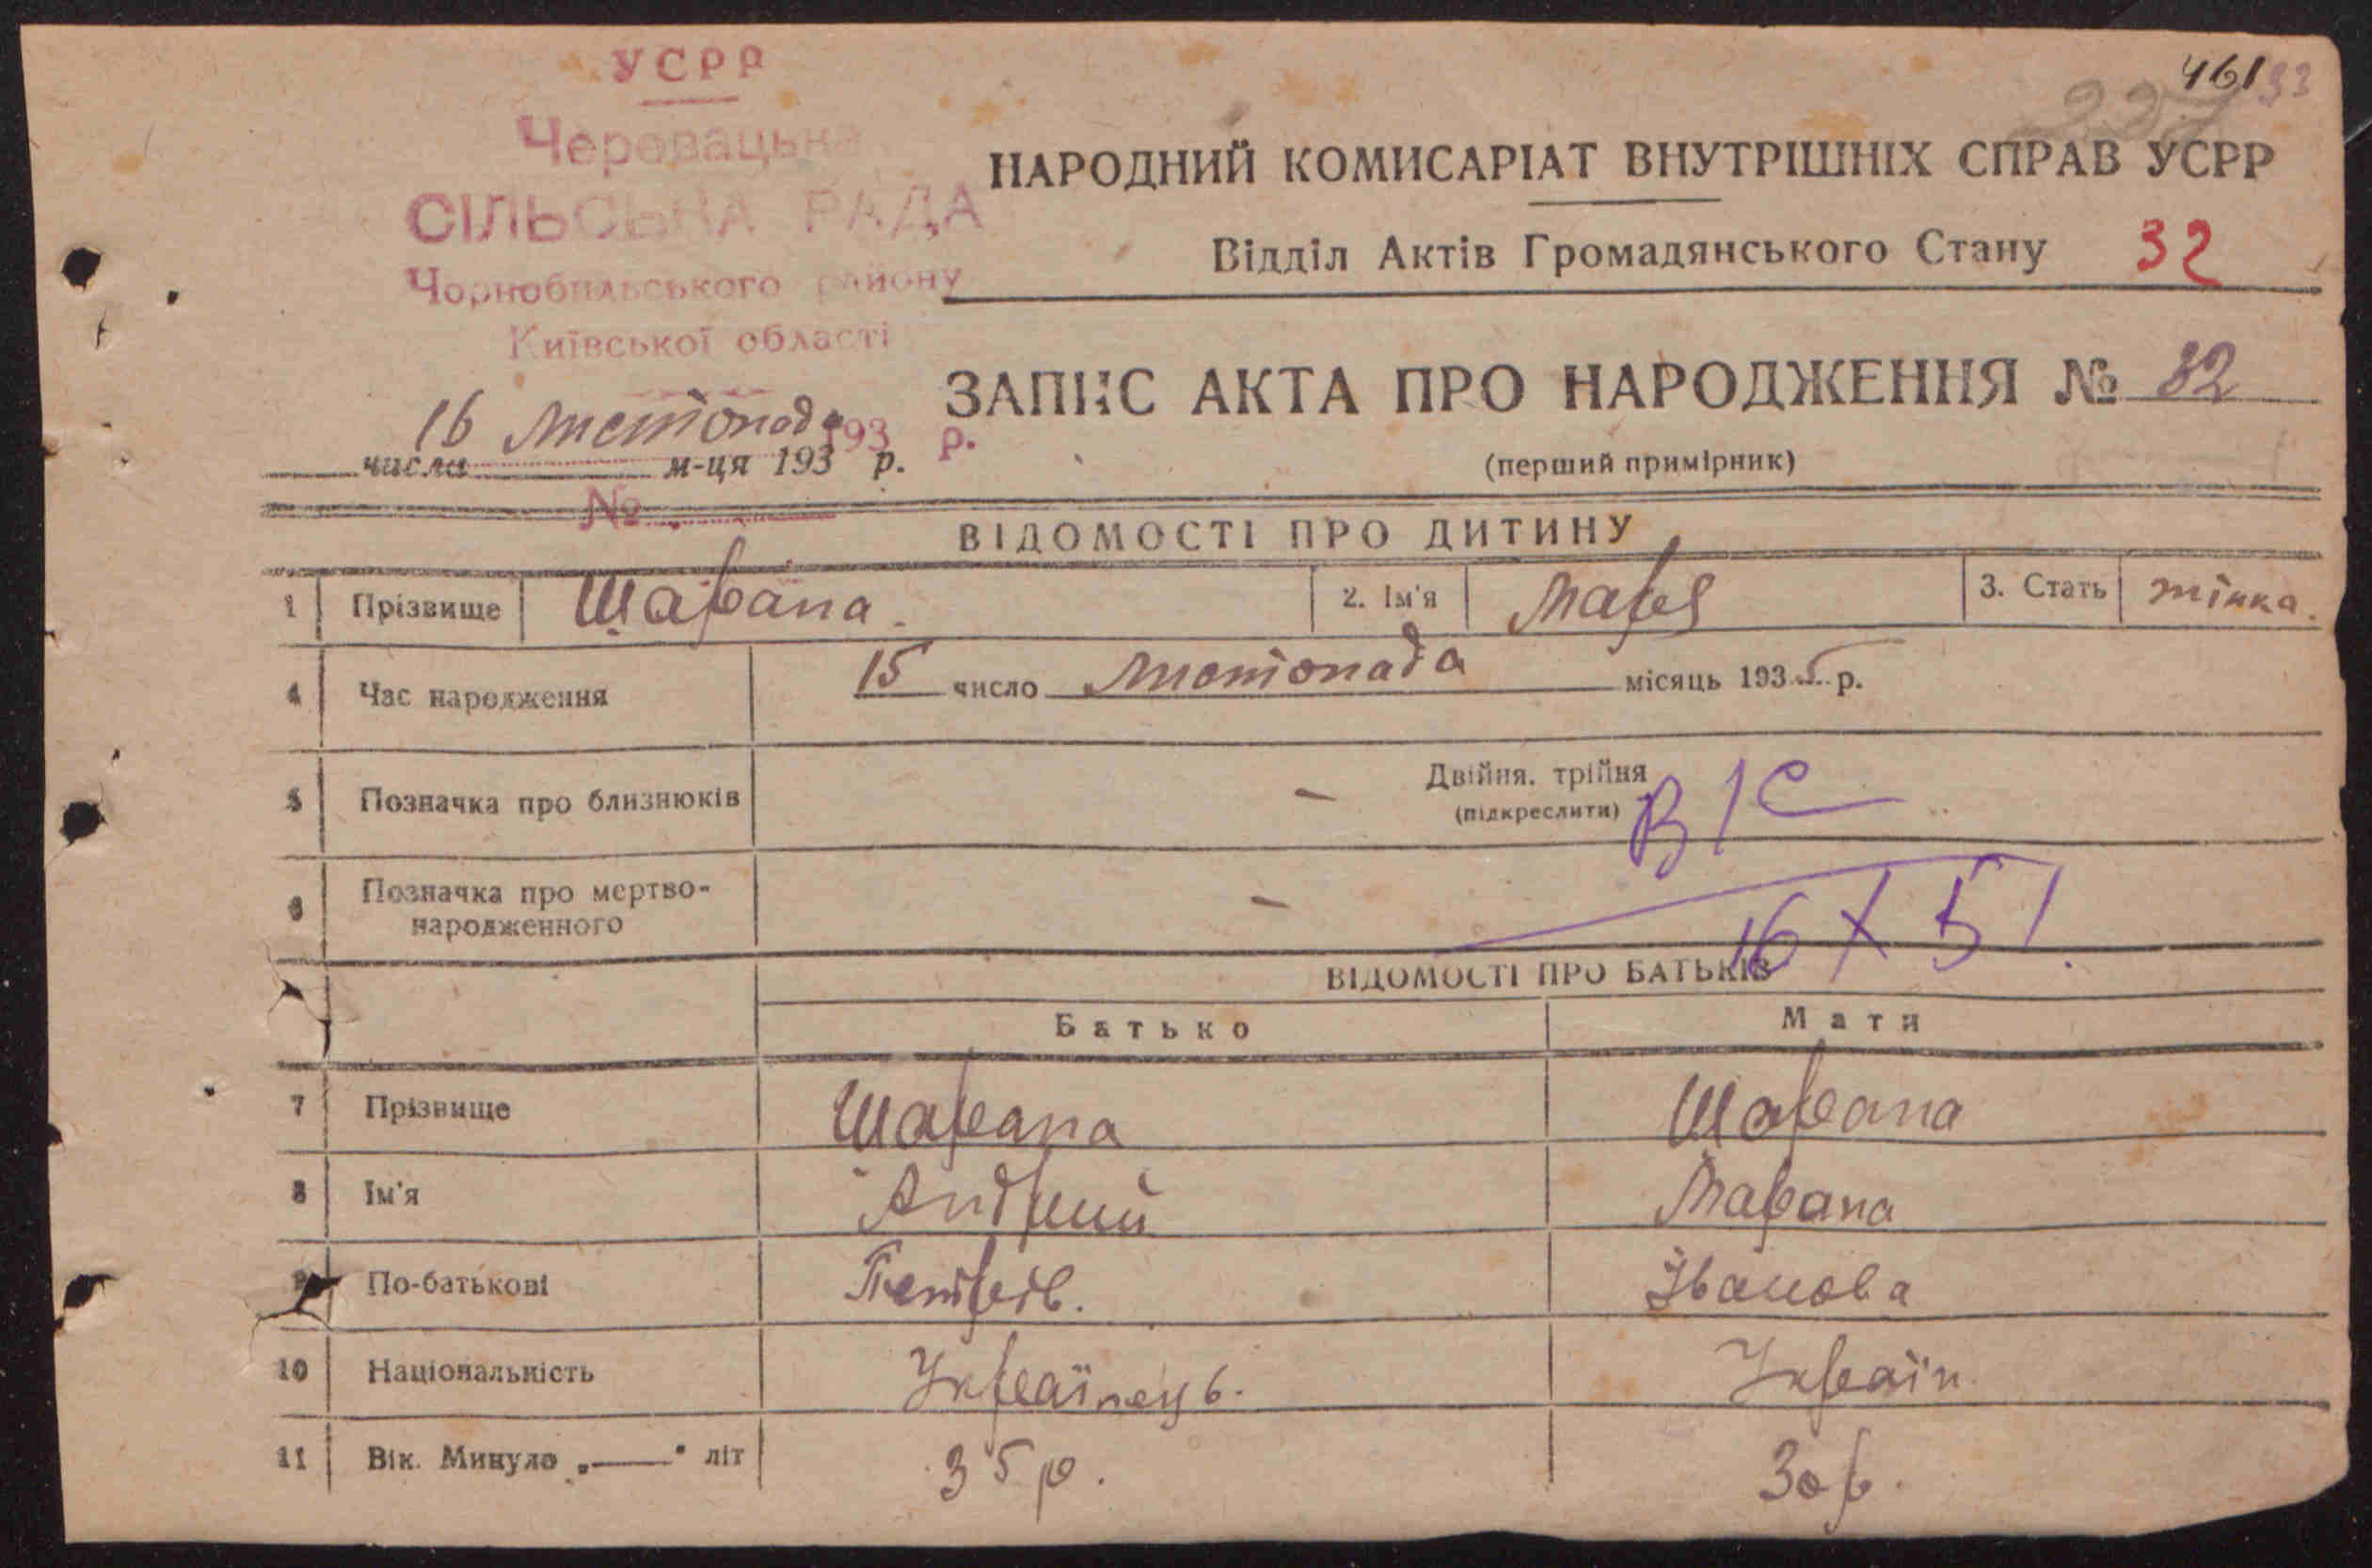 УСРР
Черевацька
СІЛЬСЬКА РАДА
Чорнобильського району
Київської області
461 32
237
НАРОДНИЙ КОМИСАРІАТ ВНУТРІШНІХ СПРАВ УСРР
Відділ Актів Громадянського Стану 32
ЗАПИС АКТА ПРО НАРОДЖЕННЯ № 32
(перший примірник)
16 листопада 193 р.
числа м-ця 193 р.
№
ВІДОМОСТІ ПРО ДИТИНУ
1 Прізвище Шарапа. 2. Ім'я Марія 3. Стать жінка.
4 Час народження 15 число листопада місяць 1935 р.
5 Позначка про близнюків – Двійня, трійня
(підкреслити)
В/С
6 Позначка про мертво-
народженного –
16 X 51.
ВІДОМОСТІ ПРО БАТЬКІВ
Батько Мати
7 Прізвище Шарапа Шарапа
8 Ім'я Андрий Марапа
9 По-батькові Петрів. Іванова
10 Національність Українець. Україн.
11 Вік. Минуло „—" літ 35 р. 30 р.